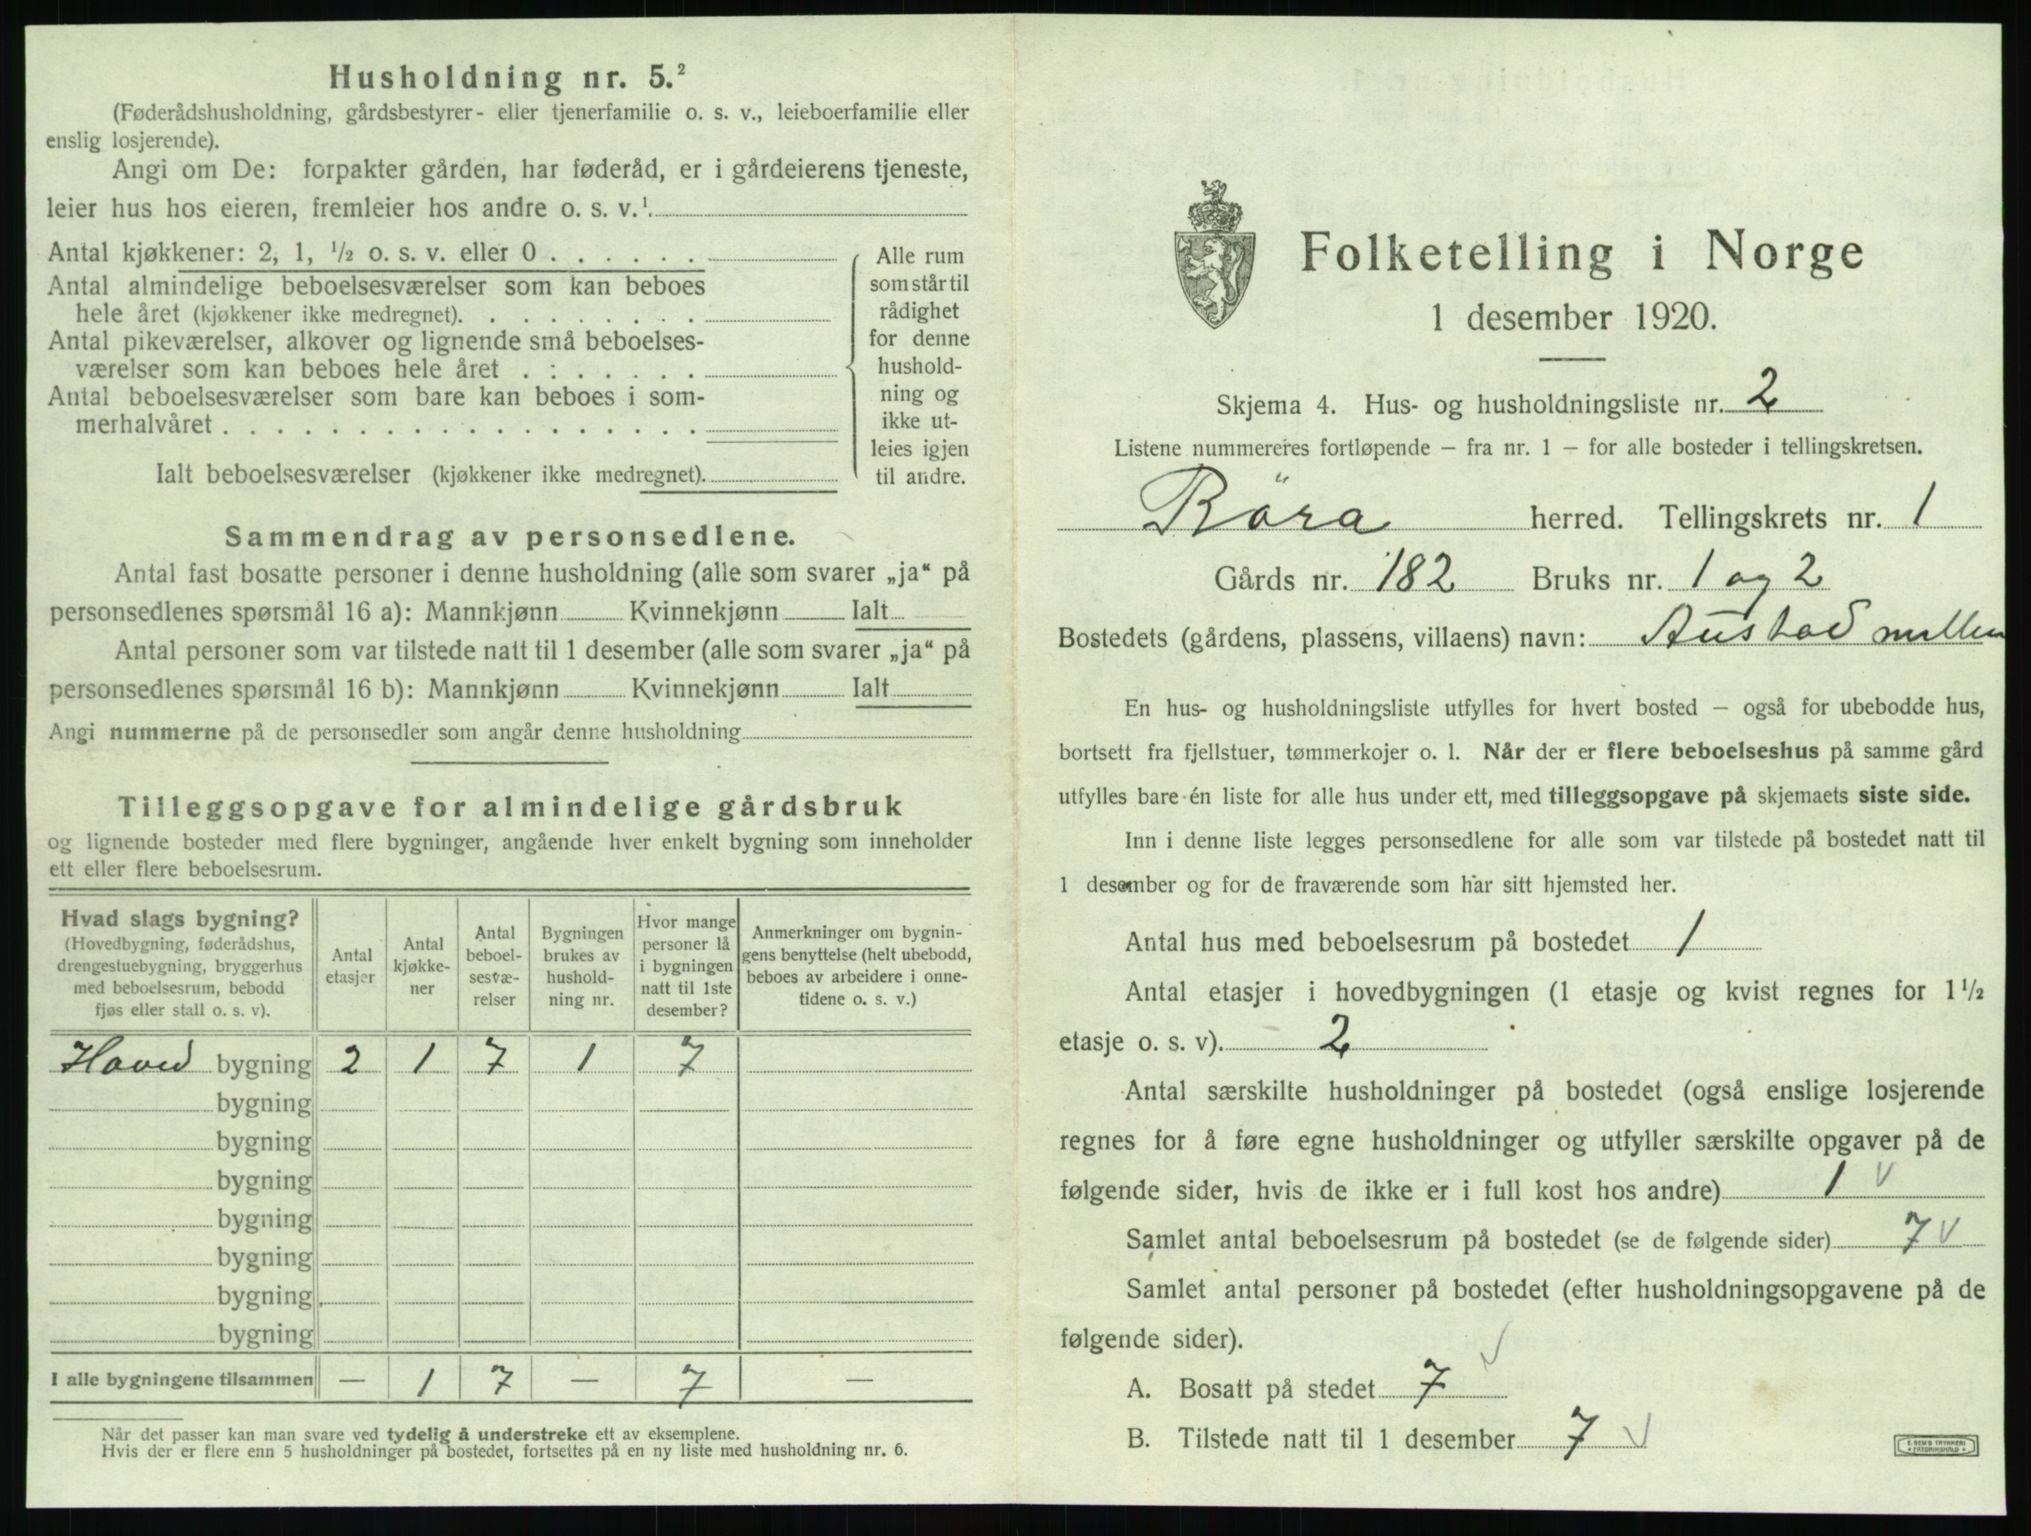 Husholdning nr. 5.²
(Føderådshusholdning, gårdsbestyrer- eller tjenerfamilie o. s. v., leieboerfamilie eller
enslig losjerende).
Angi om De: forpakter gården, har føderåd, er i gårdeierens tjeneste,
leier hus hos eieren, fremleier hos andre o. s. v.¹
Antal kjøkkener: 2, 1, ½ o. s. v. eller 0 . . . . . .
Antal almindelige beboelsesværelser som kan beboes
hele året (kjøkkener ikke medregnet). . . . . . . . .
Antal pikeværelser, alkover og lignende små beboelses-
værelser som kan beboes hele året . : . . . . .
Antal beboelsesværelser som bare kan beboes i som-
merhalvåret . . . . . . . . . . . . . . . . . .
Ialt beboelsesværelser (kjøkkener ikke medregnet).
Alle rum
som står til
rådighet
for denne
hushold-
ning og
ikke ut-
leies igjen
til andre.
Sammendrag av personsedlene.
Antal fast bosatte personer i denne husholdning (alle som svarer „ja“ på
personsedlenes spørsmål 16 a): Mannkjønn Kvinnekjønn Ialt
Antal personer som var tilstede natt til 1 desember (alle som svarer „ja“ på
personsedlenes spørsmål 16 b): Mannkjønn Kvinnekjønn Ialt
Angi nummerne på de personsedler som angår denne husholdning
Tilleggsopgave for almindelige gårdsbruk
og lignende bosteder med flere bygninger, angående hver enkelt bygning som inneholder
ett eller flere beboelsesrum.
Hvad slags bygning?
(Hovedbygning, føderådshus,
drengestuebygning, bryggerhus
med beboelsesrum, bebodd
fjøs eller stall o. s. v).
Antal
etasjer
Antal
kjøkke-
ner
Antal
beboel-
sesvæ-
relser
Bygningen
brukes av
hushold-
ning nr.
Hvor mange
personer lå
i bygningen
natt til 1ste
desember?
Anmerkninger om bygnin-
gens benyttelse (helt ubebodd,
beboes av arbeidere i onne-
tidene o. s. v.)
Hoved bygning 2 1 7 1 7
bygning
bygning
bygning
bygning
bygning
bygning
bygning
I alle bygningene tilsammen — 1 7 — 7 —
Når det passer kan man svare ved tydelig å understreke ett av eksemplene.
Hvis der er flere enn 5 husholdninger på bostedet, fortsettes på en ny liste med husholdning nr. 6.
Folketelling i Norge
1 desember 1920.
Skjema 4. Hus- og husholdningsliste nr. 2
Listene nummereres fortløpende – fra nr. 1 – for alle bosteder i tellingskretsen.
Röra herred. Tellingskrets nr. 1
Gårds nr. 182 Bruks nr. 1 og 2
Bostedets (gårdens, plassens, villaens) navn: Austad mellem
En hus- og husholdningsliste utfylles for hvert bosted – også for ubebodde hus,
bortsett fra fjellstuer, tømmerkojer o. l. Når der er flere beboelseshus på samme gård
utfylles bare én liste for alle hus under ett, med tilleggsopgave på skjemaets siste side.
Inn i denne liste legges personsedlene for alle som var tilstede på bostedet natt til
1 desember og for de fraværende som har sitt hjemsted her.
Antal hus med beboelsesrum på bostedet 1
Antal etasjer i hovedbygningen (1 etasje og kvist regnes for 1½
etasje o. s. v). 2
Antal særskilte husholdninger på bostedet (også enslige losjerende
regnes for å føre egne husholdninger og utfyller særskilte opgaver på de
følgende sider, hvis de ikke er i full kost hos andre) 1 v
Samlet antal beboelsesrum på bostedet (se de følgende sider) 7 v
Samlet antal personer på bostedet (efter husholdningsopgavene på de
følgende sider).
A. Bosatt på stedet 7 v
B. Tilstede natt til 1 desember 7 v